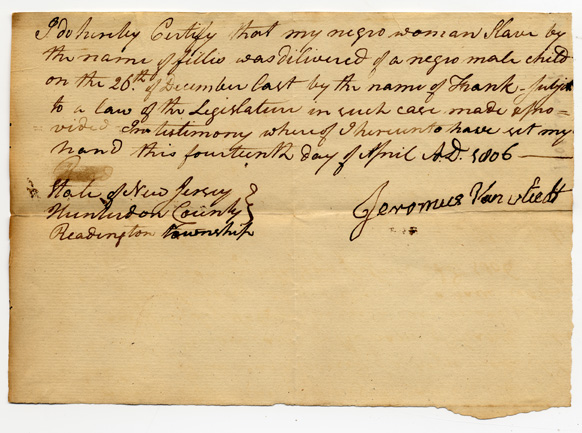 I do hereby Certify that my negro woman Slave by
the name of fillis was dilivered of a negro male child
on the 26th of December Last by the name of Frank - Subject
to a law of the Legislature in such case made & pro=
=vided - In testimony where of I hereunto have set my
hand this fourteenth day of April A.D. 1806
State of New Jersey
Hunterdon County
Readington township
Jeromus Van